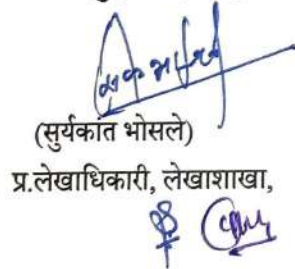 (सुर्यकांत भोसले)
प्र.लेखाधिकारी, लेखाशाखा,